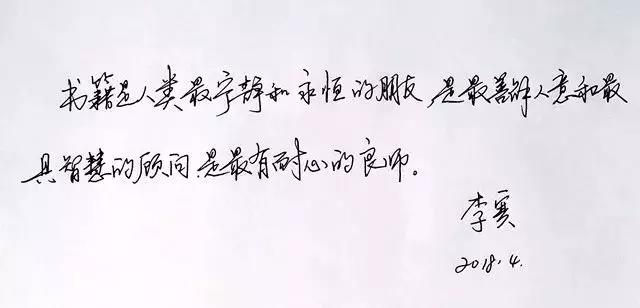 书籍是人类最宁静和永恒的朋友,是最善解人意和最
具智慧的顾问,是最有耐心的良师。
李
2018.4.